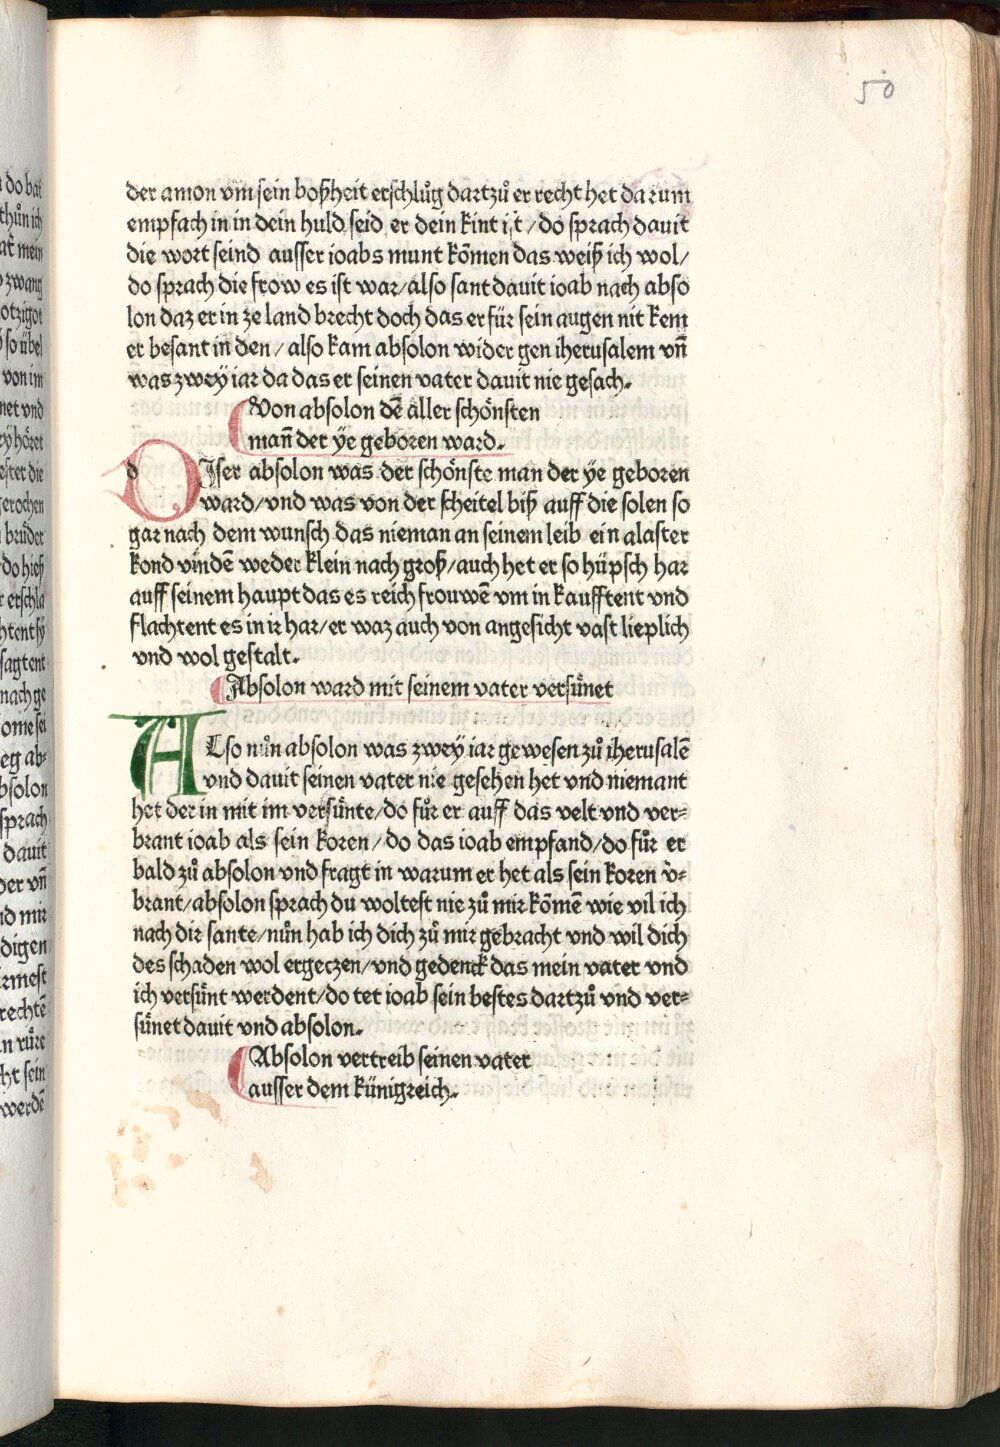 50
der amon vm sein boßheit erschlůg dartzů er recht het darum
empfach in in dein huld seid er dein kint ist / do sprach dauit
die wort seind ausser ioabs munt kõmen das weiß ich wol /
do sprach die frow es ist war / also sant dauit ioab nach abso
lon daz er in ze land brecht doch das er für sein augen nit kem
er besant in den / also kam absolon wider gen iherusalem vñ
was zwey iar da das er seinen vater dauit nie gesach.
Von absolon dẽ aller schönsten
mañ der ye geboren ward.
d DIser absolon was der schönste man der ye geboren
ward / vnd was von der scheitel biß auff die solen so
gar nach dem wunsch das nieman an seinem leib ein alaster
kond vindẽ weder klein nach groß / auch het er so hüpsch har
auff seinem haupt das es reich frouwẽ vm in kaufftent vnd
flachtent es in ir har / er waz auch von angesicht vast lieplich
vnd wol gestalt.
Absolon ward mit seinem vater versünet
ALso nůn absolon was zwey iar gewesen zů iherusalẽ
vnd dauit seinen vater nie gesehen het vnd niemant
het der in mit im versünte / do fůr er auff das velt vnd ver⸗
brant ioab als sein koren / do das ioab empfand / do fůr er
bald zů absolon vnd fragt in warum er het als sein koren v̾⸗
brant / absolon sprach du woltest nie zů mir kõmẽ wie vil ich
nach dir sante / nůn hab ich dich zů mir gebracht vnd wil dich
des schaden wol ergeczen / vnd gedenck das mein vater vnd
ich versünt werdent / do tet ioab sein bestes dartzů vnd ver⸗
sünet dauit vnd absolon.
Absolon vertreib seinen vater
ausser dem künigreich.